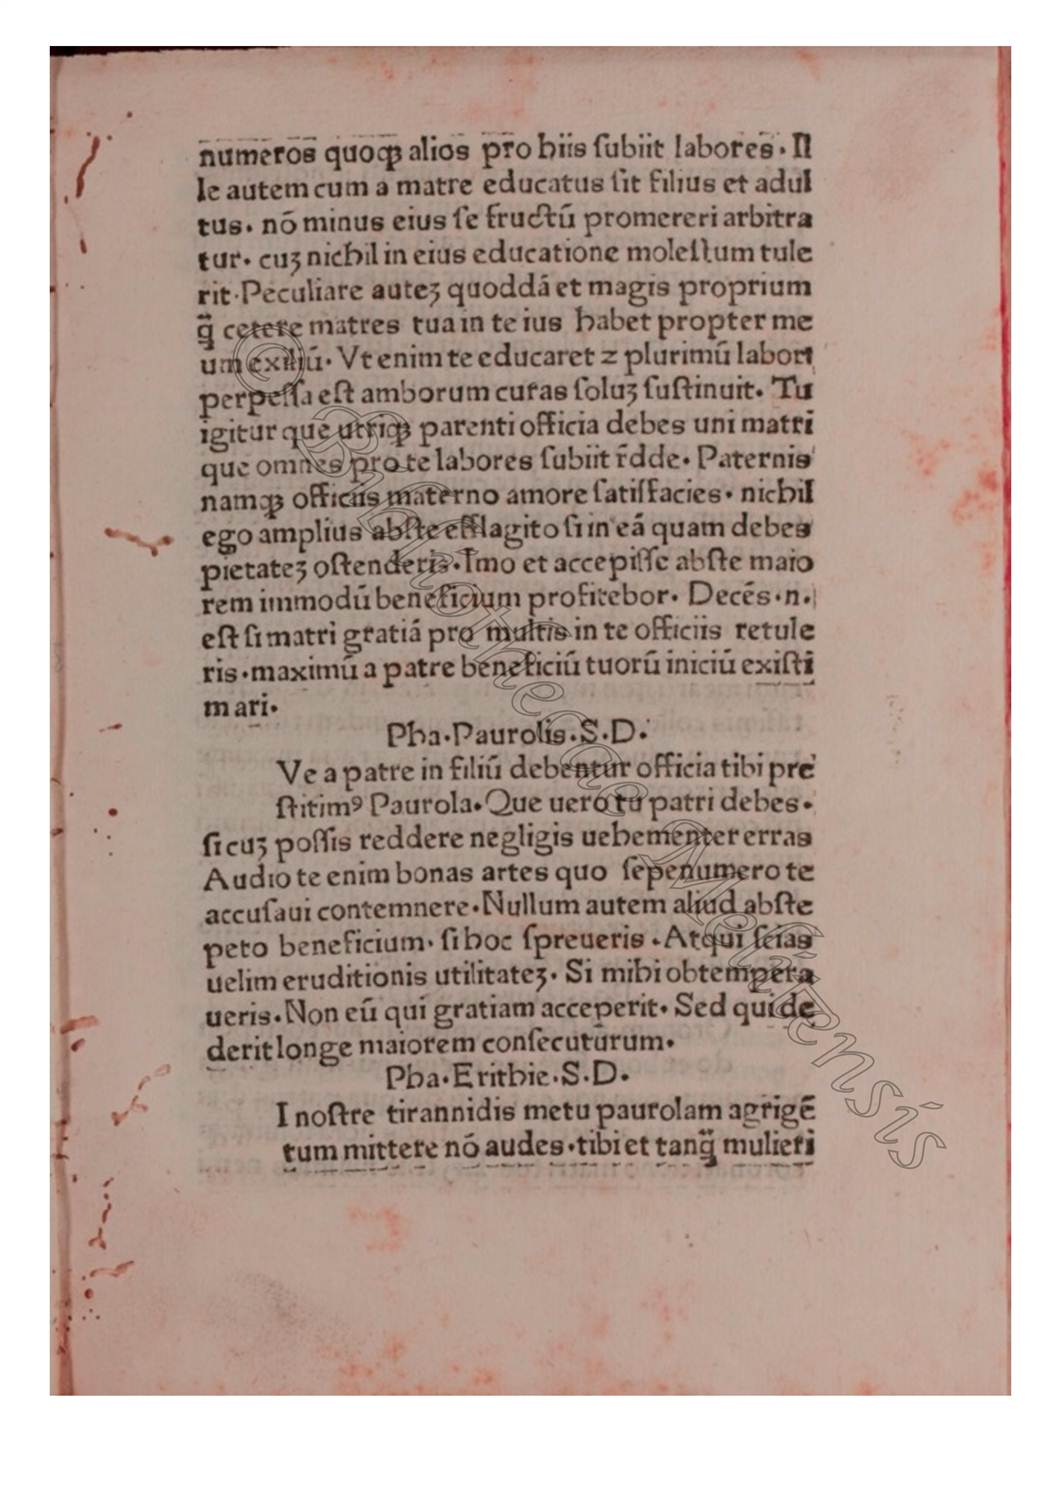 numeros quoqꝫ alios pro hiis ſubiit labores · Il
le autem cum a matre educatus ſit filius et adul
tus · nō minus eius ſe fructū promereri arbitra
tur · cuꝫ nichil in eius educatione moleſtum tule
rit · Peculiare auteꝫ quoddā et magis proprium
q̄ cetere matres tua in te ius habet propter me
um exiliū · Vt enim te educaret ⁊ plurimū labori
perpeſſa eſt amborum curas ſoluꝫ ſuſtinuit · Tu
igitur que utriqꝫ parenti officia debes uni matri
que omnes pro te labores ſubiit r̄dde · Paternis
namqꝫ officiis materno amore ſatiſfacies · nichil
ego amplius abſte efflagito ſi in eā quam debes
pietateꝫ oſtenderis · Imo et accepiſſe abſte maio
rem immodū beneficium profitebor · Decēs · n ·
eſt ſi matri gratiā pro multis in te officiis retule
ris · maximū a patre beneficiū tuorū iniciū exiſti
mari ·
Pha · Paurolis · S · D ·
Ve a patre in filiū debentur officia tibi pre
ſtitimꝰ Paurola · Que uero tu patri debes ·
ſi cuꝫ poſſis reddere negligis uehementer erras
Audio te enim bonas artes quo ſepenumero te
accuſaui contemnere · Nullum autem aliud abſte
peto beneficium · ſi hoc ſpreueris · Atqui ſcias
uelim eruditionis utilitateꝫ · Si mihi obtempera
ueris · Non eū qui gratiam acceperit · Sed qui de
derit longe maiorem conſecuturum ·
Pha · Erithie · S · D ·
I noſtre tirannidis metu paurolam agrigē
tum mittere nō audes · tibi et tanq̄ mulieri
© Bibliothecae Melitensis